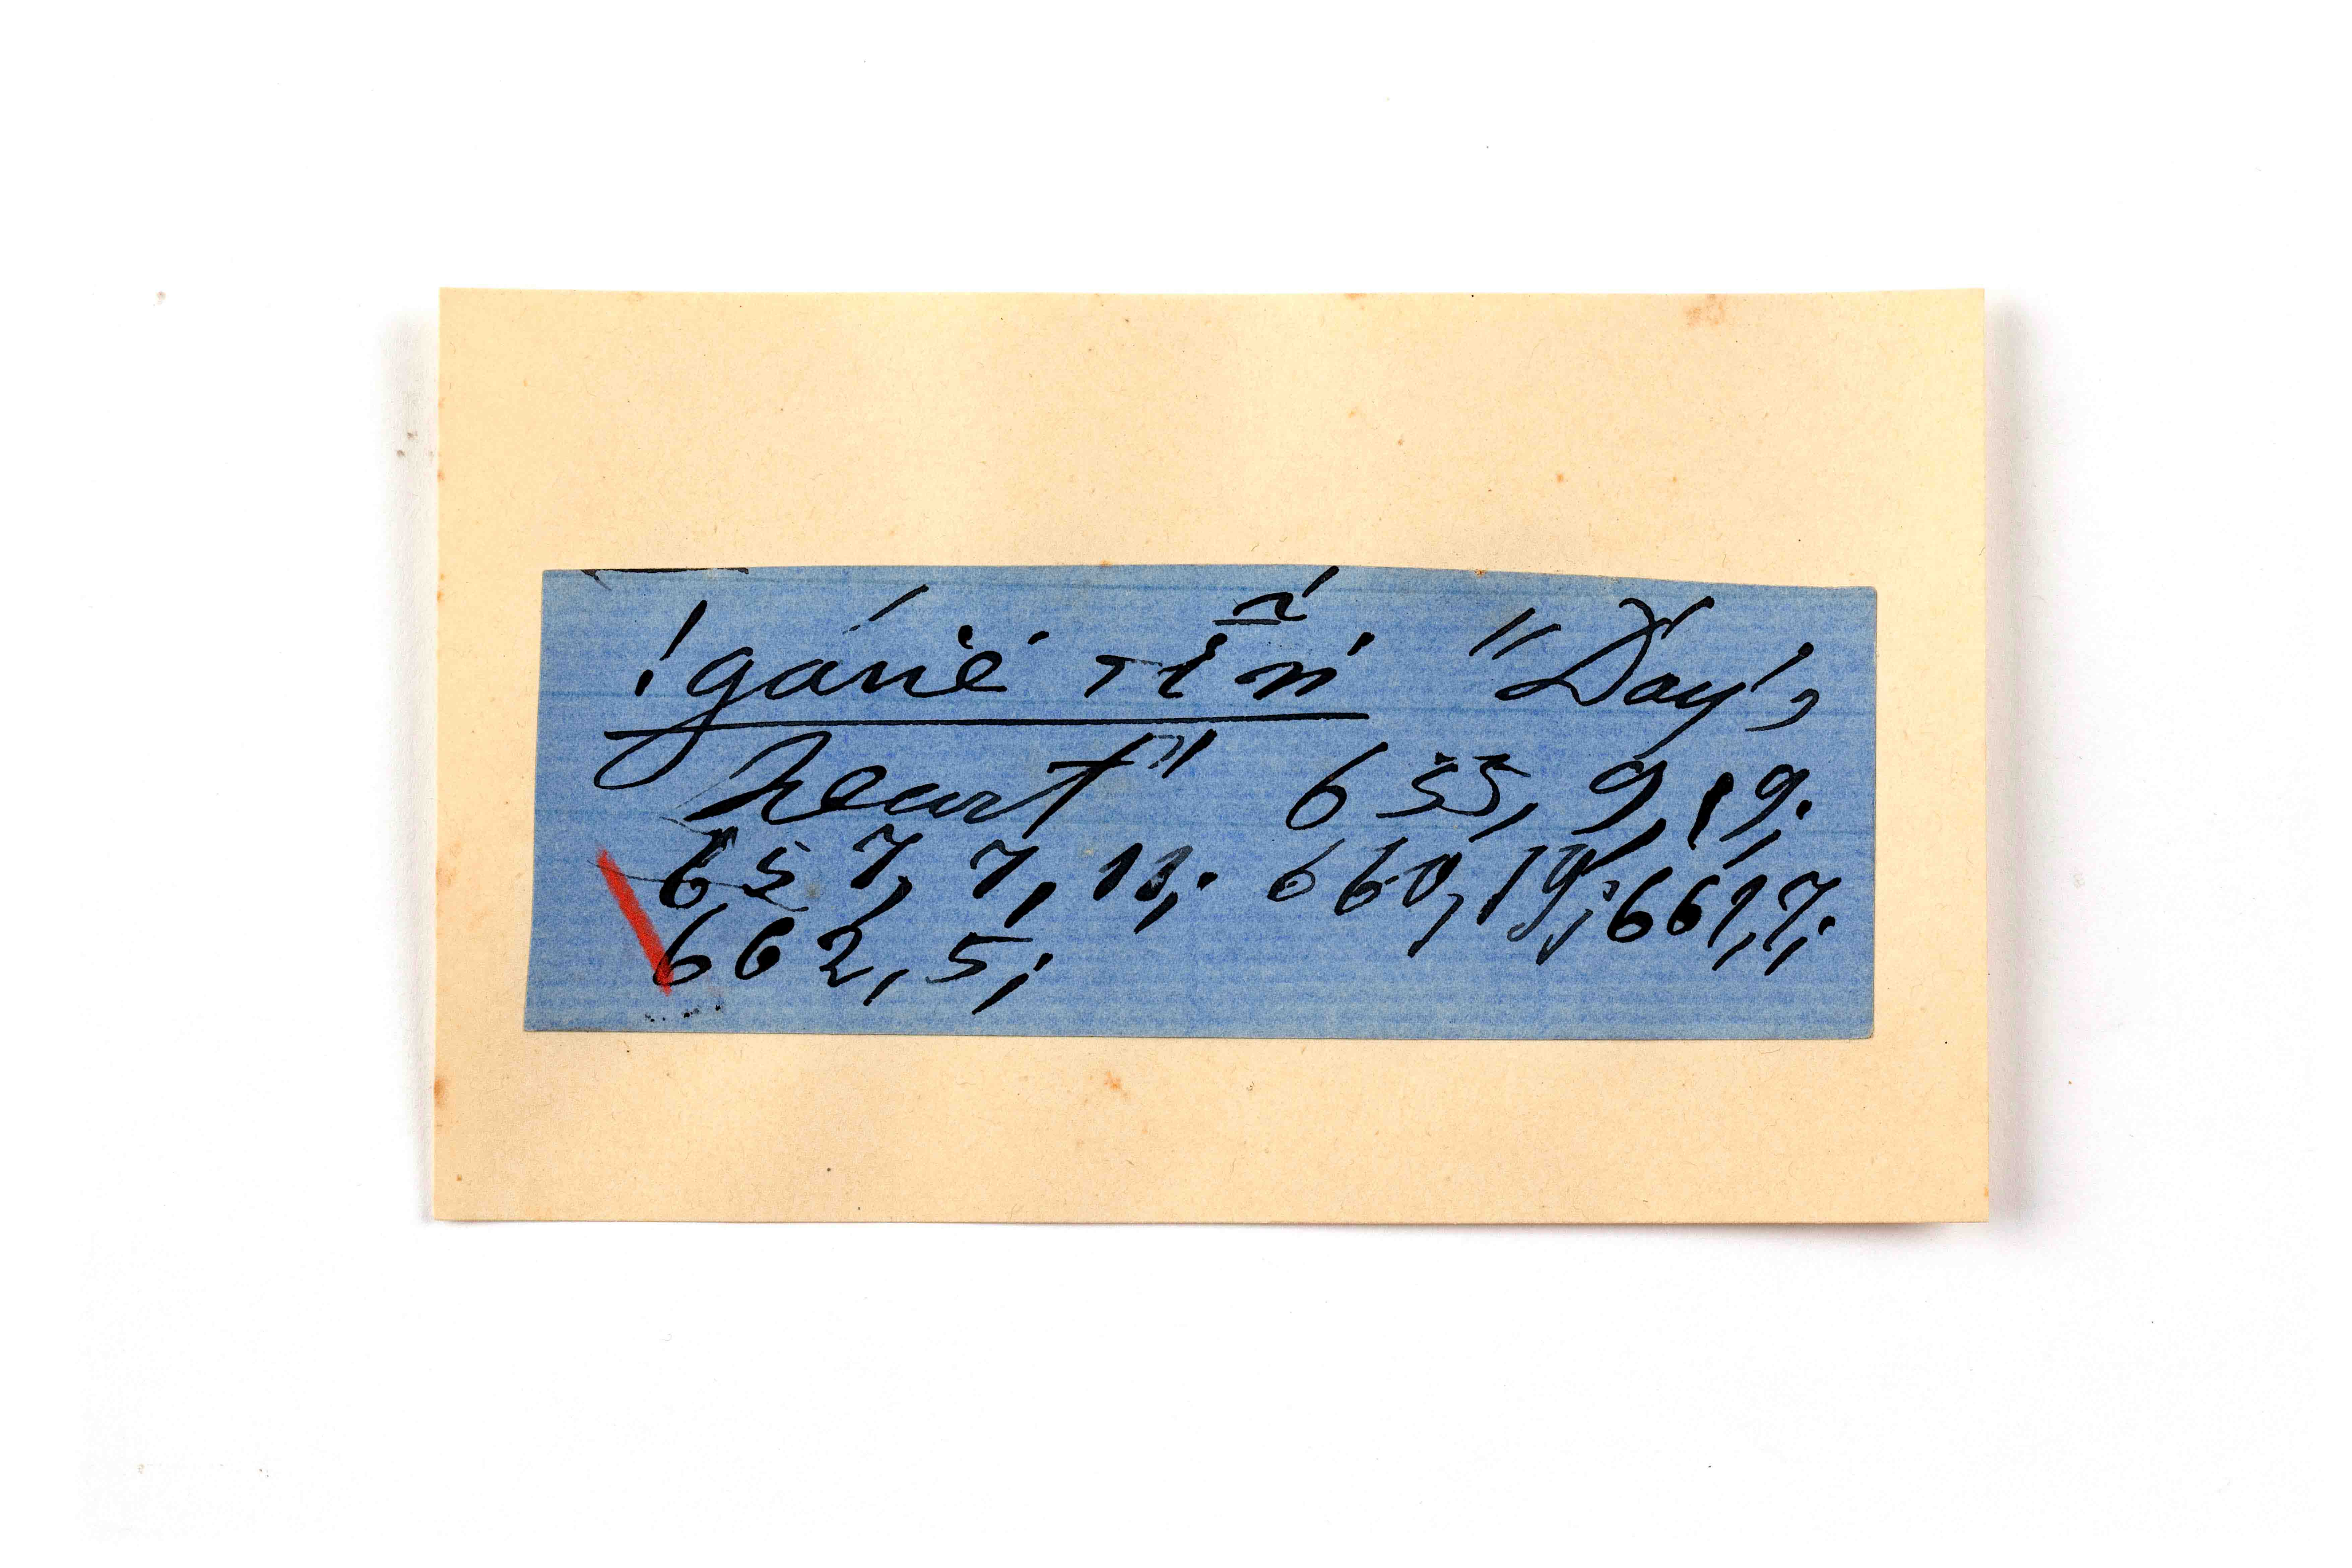 !gáriĕ ⊤ĩń "Day's
heart" 655, 9, 19;
657, 7, 11; 660, 19; 661, 7;
662, 5;